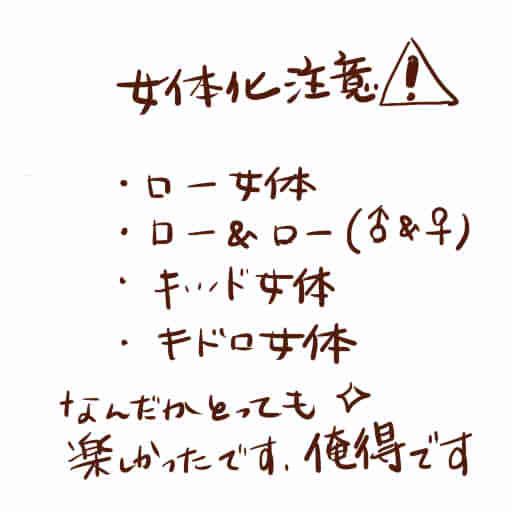 女体化注意⚠
・ロー女体
・ロー&ロー(♂&♀)
・キッド女体
・キドロ女体
なんだかとっても✧
楽しかったです、俺得です